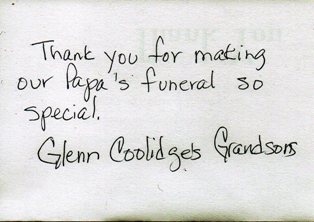 Thank you for making
our Papa's funeral so
special.
Glenn Coolidge's Grandsons